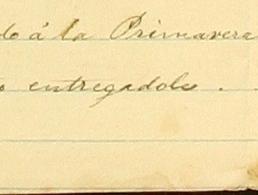 do á la Primavera
o entregadole . .